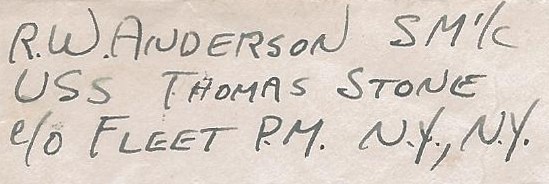 R.W. ANDERSON SM1/c
USS THOMAS STONE
c/o FLEET P.M. N.Y., N.Y.